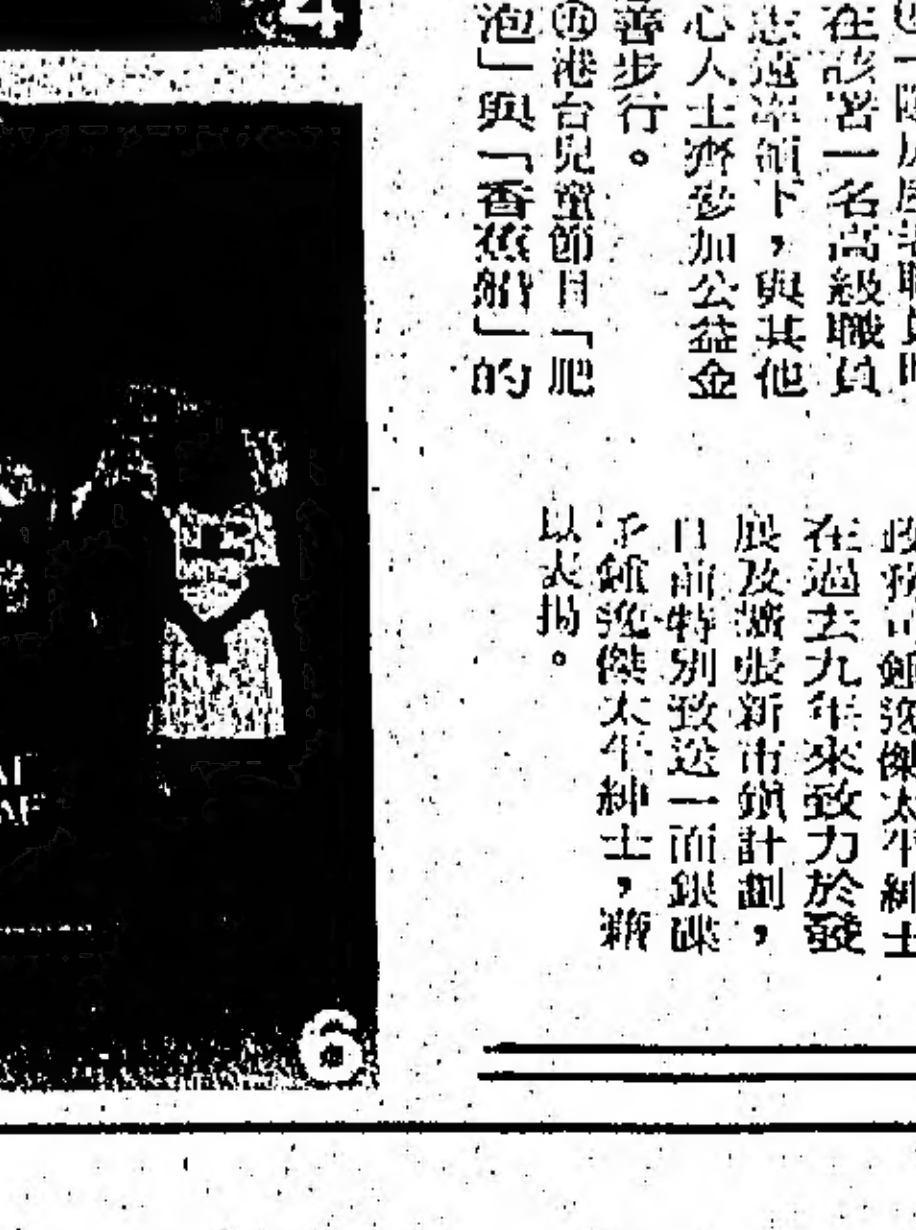 在該署一名高級職員
志遠率領下，與其他
心人士齊參加公益金
善步行。
㊄港台兒童節目「肥
泡」與「香蕉船」的
政務司鍾逸傑太平紳士
在過去九年來致力於發
展及擴張新市鎮計劃，
日前特別致送一面銀碟
予鍾逸傑太平紳士，藉
以表揚。
4
6